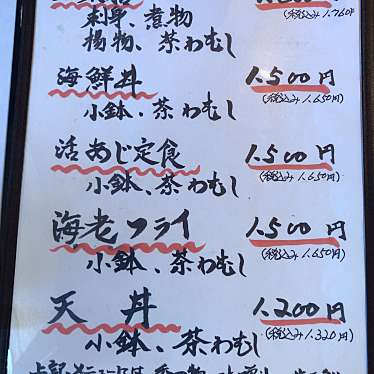 (税込み1.760円
刺身、煮物
揚物、茶わむし
海鮮丼 1.500円
(税込み1.650円)
小鉢、茶わむし
活あじ定食 1.500円
(税込み1.650円)
小鉢、茶わむし
海老フライ 1.500円
(税込み1.650円)
小鉢、茶わむし
天丼 1.200円
(税込み1.320円)
小鉢、茶わむし
上記メニューには